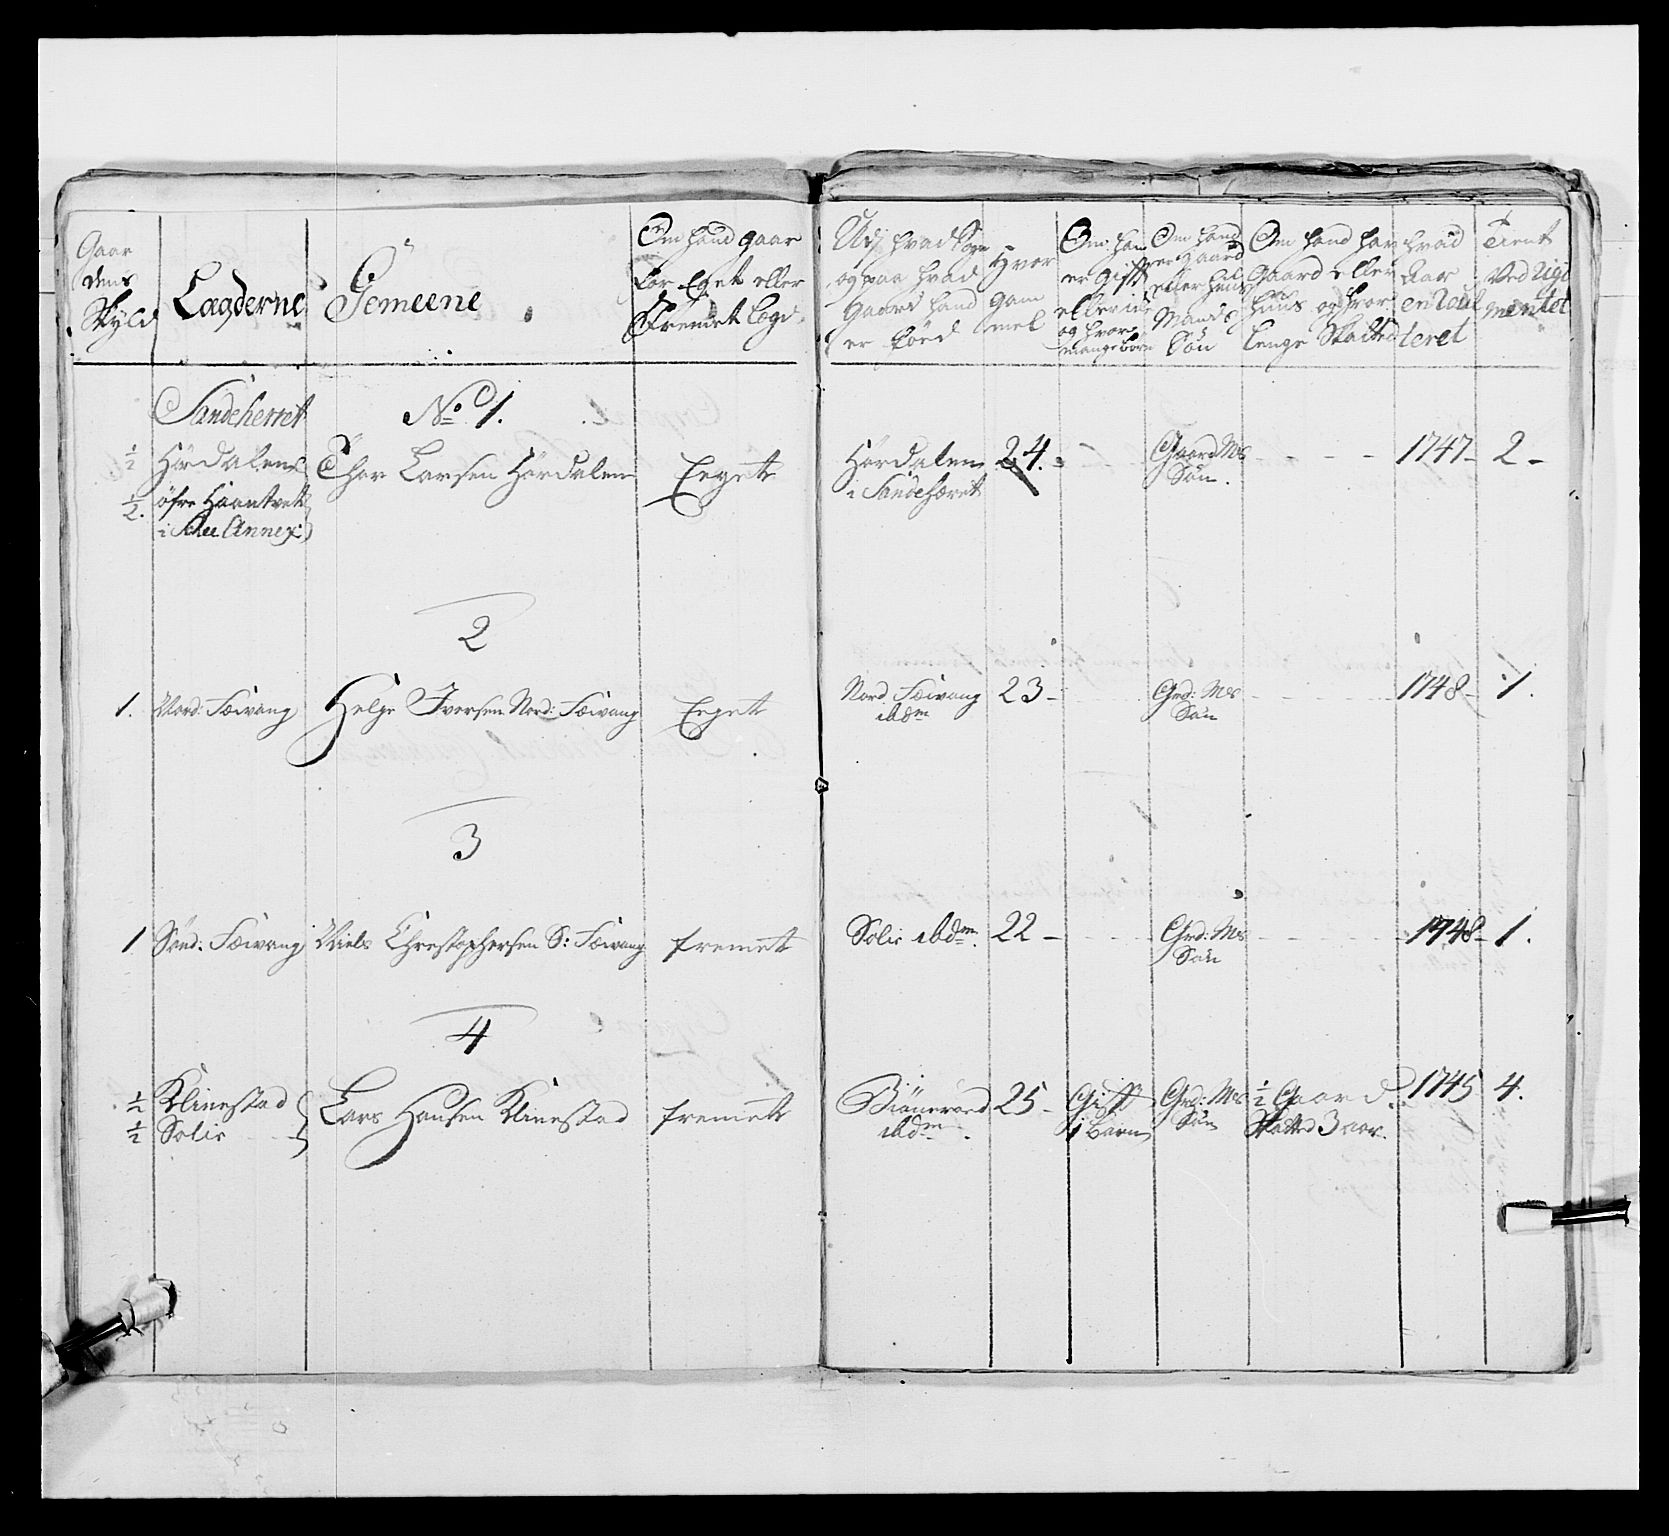 Gaardens Skyld
Lægderne
Gemeene
Om hand gaar for Eget eller Fremet Lægd
Udj hvad Sogn og paa hvad Gaard hand er föed
Hvor Gammel
Om han er Gift eller ei og hvor mange börn
Om hand er Gaard eller Huus Mands Sön
Om hand har Gaard eller Huus og hvor lenge Skatted
hvad Aar enroulleret
Tient Ved Rigimentet
Sandeherret
No 1.
1/2 Hördalen
1/2. öfre Haantvet
i Annex
Thor Larsen Hördalen
Eeget
Hördalen
i Sandehæret
24.
Gaard Ms
Sön.
1747 - 2 -
2
1. Nord: Fæivang
Helge Iversen Nord: Fæivang
Eeget
Nord Fæivang
ibdm
23 -
Grd: Ms
Sön
1748 - 1.
3
1 Sönd. Fæivang
Niels Christophersen S: Fæivang
fremet
Solie ibdm.
22 -
Grd: Ms
Sön
1748 - 1.
4
1/2 Klinestad
1/2 Solie
Lars Hansen Klinestad
fremet
ibdm.
25 -
Gift
1 Barn
Grd: Ms
Sön
1/2 Gaard
Skatted 3 aar.
1745
4.